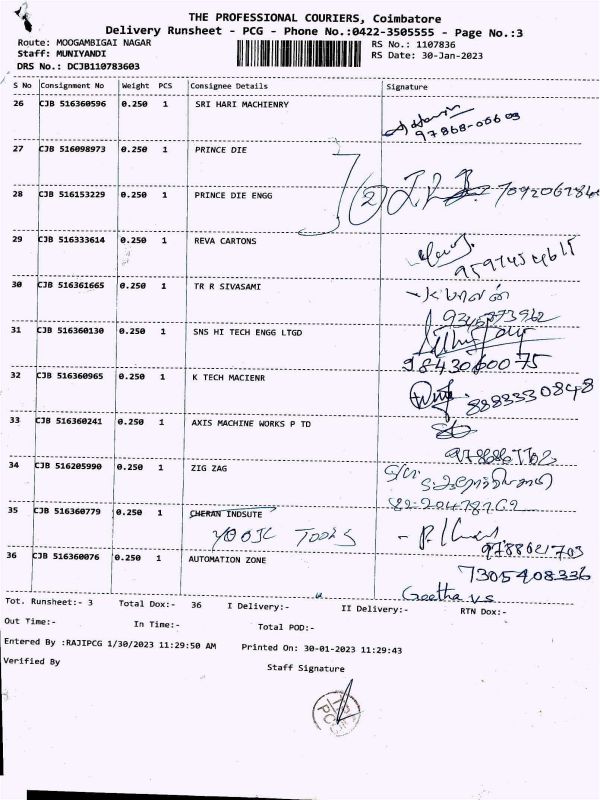 THE PROFESSIONAL COURIERS, Coimbatore
Delivery Runsheet - PCG - Phone No.:0422-3505555 - Page No.:3
Route: MOOGAMBIGAI NAGAR
RS No.: 1107836
Staff: MUNIYANDI
RS Date: 30-Jan-2023
DRS No.: DCJB110783603
S No Consignment No Weight PCS Consignee Details Signature
26 CJB 516360596 0.250 1 SRI HARI MACHIENRY
27 CJB 516098973 0.250 1 PRINCE DIE
28 CJB 516153229 0.250 1 PRINCE DIE ENGG
2
29 CJB 516333614 0.250 1 REVA CARTONS
30 CJB 516361665 0.250 1 TR R SIVASAMI
31 CJB 516360130 0.250 1 SNS HI TECH ENGG LTGD
9843060075
32 CJB 516360965 0.250 1 K TECH MACIENR
8883330848
33 CJB 516360241 0.250 1 AXIS MACHINE WORKS P TD
34 CJB 516205990 0.250 1 ZIG ZAG
35 CJB 516360779 0.250 1 CHERAN INDSUTE
TOOLS
9788621703
36 CJB 516360076 0.250 1 AUTOMATION ZONE
7305408336
Geetha v.s
Tot. Runsheet:- 3 Total Dox:- 36 I Delivery:- II Delivery:- RTN Dox:-
Out Time:- In Time:- Total POD:-
Entered By :RAJIPCG 1/30/2023 11:29:50 AM Printed On: 30-01-2023 11:29:43
Verified By
Staff Signature